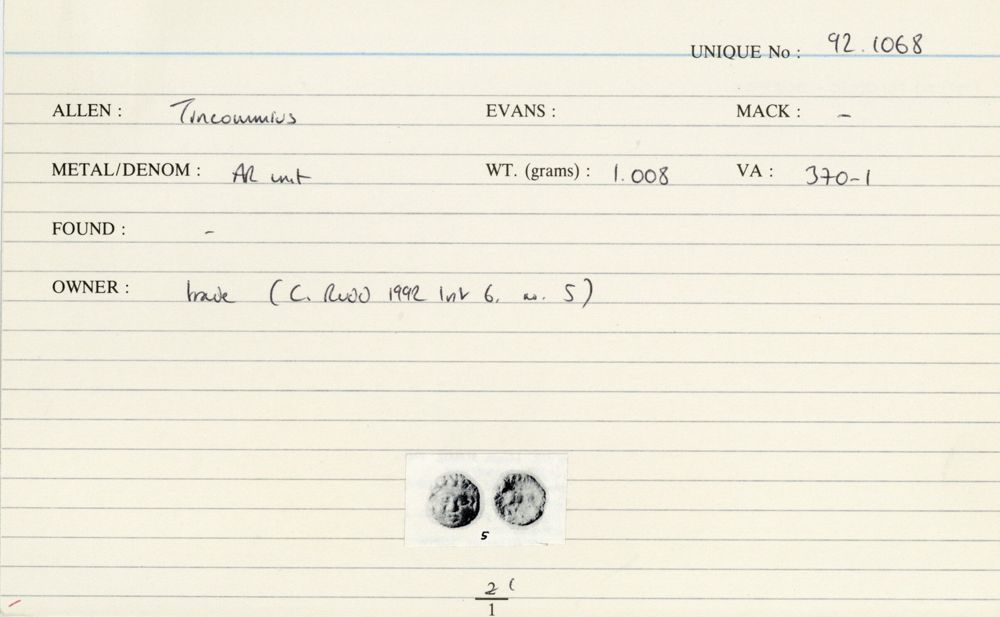 UNIQUE No : 92.1068
ALLEN : Tincommius EVANS : MACK : -
METAL/DENOM : AR unit WT. (grams) : 1.008 VA : 370-1
FOUND : -
OWNER : trade (C. Rudd 1992 list 6, no. 5)
5
2
1